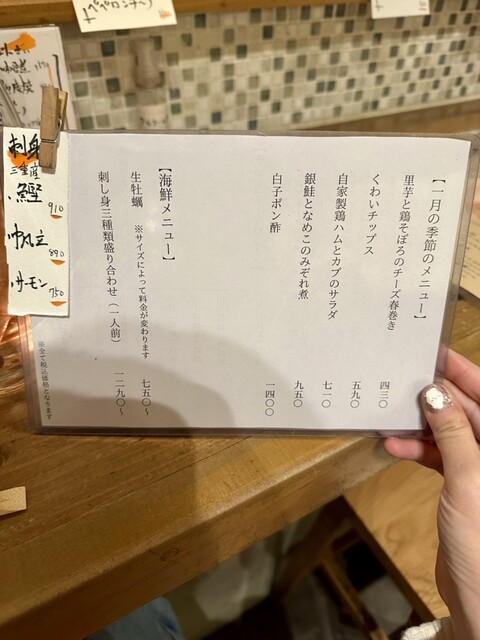 【一月の季節のメニュー】
里芋と鶏そぼろのチーズ春巻き 四三〇
くわいチップス 五九〇
自家製鶏ハムとカブのサラダ 七一〇
銀鮭となめこのみぞれ煮 九五〇
白子ポン酢 一四〇〇
【海鮮メニュー】
生牡蠣 ※サイズによって料金が変わります 七五〇~
刺し身三種類盛り合わせ(一人前) 一二九〇~
※全て税込価格となります
刺身
三重産
鰹 910
帆立 890
サーモン 750
ペペロンチーノ